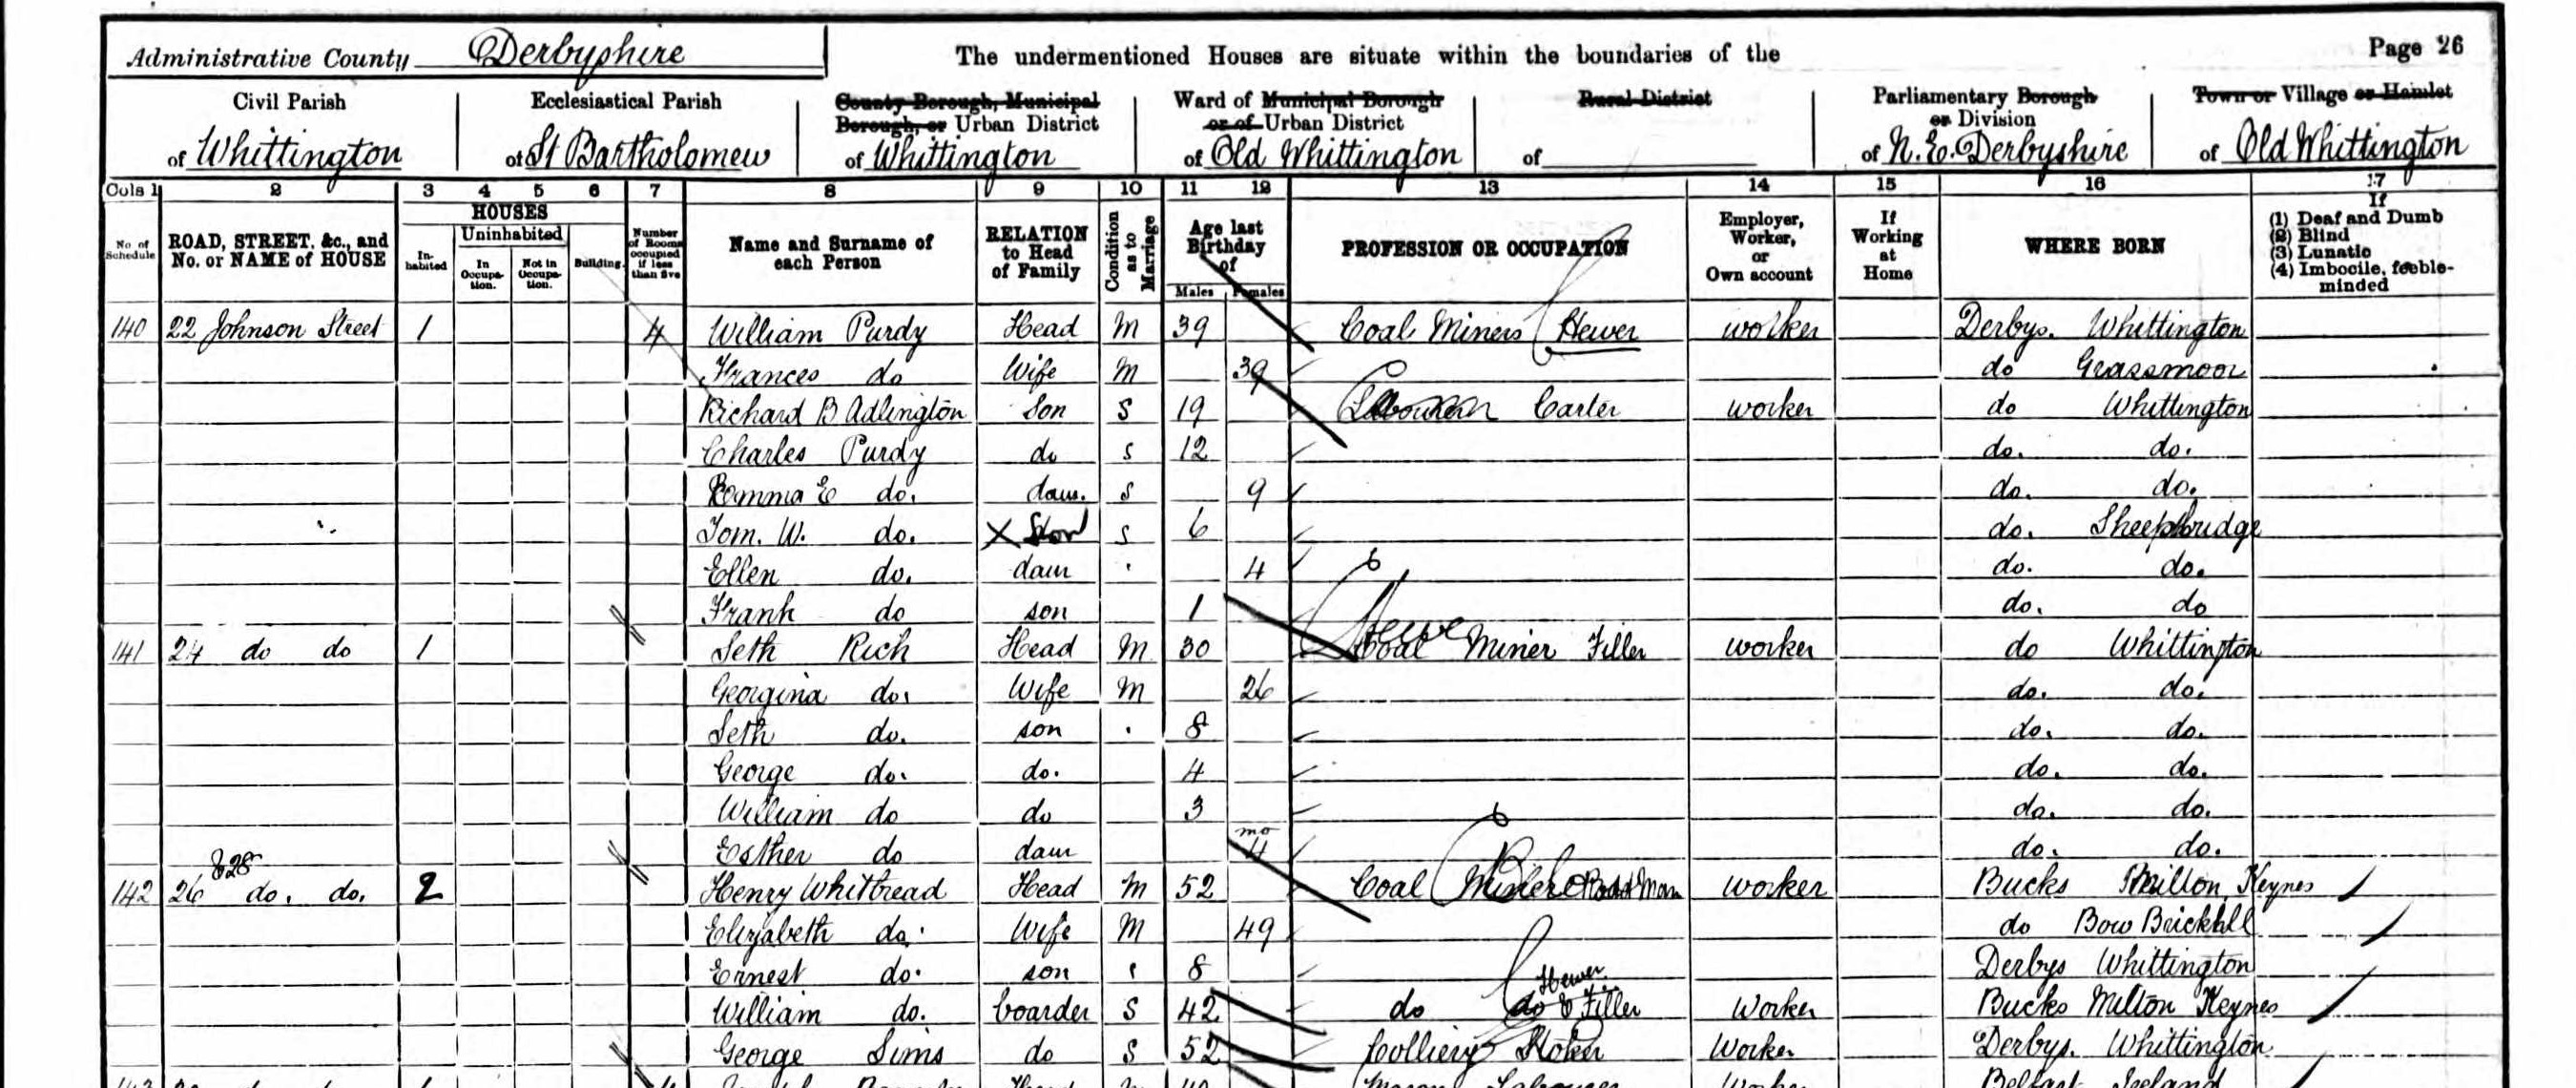 Administrative County Derbyshire The undermentioned Houses are situate within the boundaries of the Page 26
Civil Parish of Whittington
Ecclesiastical Parish of St Bartholomew
County Borough, Municipal Borough, or Urban District of Whittington
Ward of Municipal Borough or of Urban District of Old Whittington
Rural District of
Parliamentary Borough or Division of N. E. Derbyshire
Town or Village or Hamlet of Old Whittington
Cols 1 2 3 4 5 6 7 8 9 10 11 12 13 14 15 16 17
No. of Schedule
ROAD, STREET, &c., and No. or NAME of HOUSE
HOUSES
Inhabited
Uninhabited
In Occupation.
Not in Occupation.
Building.
Number of Rooms occupied if less than five
Name and Surname of each Person
RELATION to Head of Family
Condition as to Marriage
Age last Birthday of
Males Females
PROFESSION OR OCCUPATION
Employer, Worker, or Own account
If Working at Home
WHERE BORN
If
(1) Deaf and Dumb
(2) Blind
(3) Lunatic
(4) Imbecile, feeble-minded
140 22 Johnson Street 1 4 William Purdy Head M 39 Coal Miners Hewer worker Derbys. Whittington
Frances do Wife M 39 do Grassmoor
Richard B Adlington Son S 19 Carter worker do Whittington
Charles Purdy do S 12 do. do.
Emma E do. daur. S 9 do. do.
Tom. W. do. X Son S 6 do. Sheepbridge
Ellen do. daur 4 do. do.
Frank do son 1 do. do
141 24 do do 1 Seth Rich Head M 30 Hewer Coal Miner Filler worker do Whittington
Georgina do. Wife M 26 do. do.
Seth do. son 8 do. do.
George do. do. 4 do. do.
William do do 3 do. do.
Esther do daur 4 mo do. do.
142 26 & 28 do. do. 2 Henry Whitbread Head M 52 Coal Miner Road Man worker Bucks Milton Keynes
Elizabeth do. Wife M 49 do Bow Brickhill
Ernest do. son 8 Derbys Whittington
William do. boarder S 42 do do Hewer & Filler Worker Bucks Milton Keynes
George Sims do S 52 Colliery Stoker Worker Derbys. Whittington